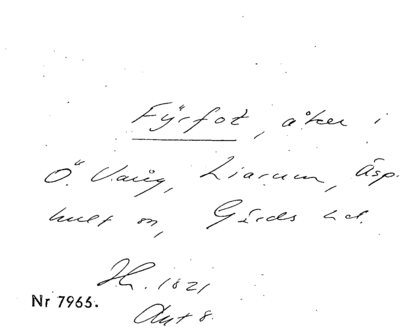 Fyrfot, åker i
Ö. Vång, Liarum, Äsp-
hult sn, Gärds hd.
H. 1821
Akt 8.
Nr 7965.